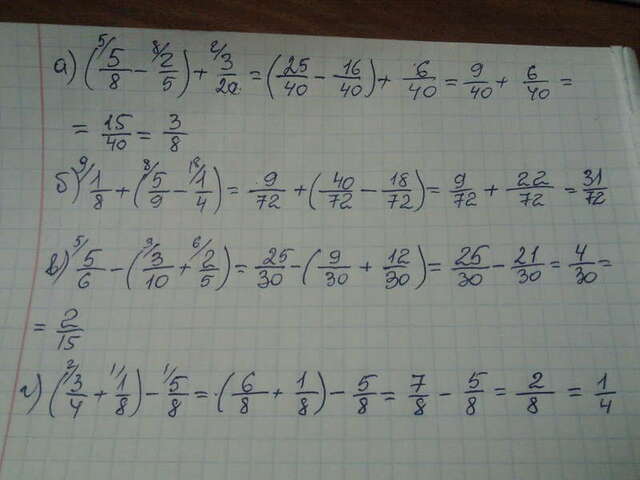 а) (⁵/5/8 - ⁸/2/5) + ²/3/20 = (25/40 - 16/40) + 6/40 = 9/40 + 6/40 =
= 15/40 = 3/8
б) ⁹/1/8 + (⁸/5/9 - ¹⁸/1/4) = 9/72 + (40/72 - 18/72) = 9/72 + 22/72 = 31/72
в) ⁵/5/6 - (³/3/10 + ⁶/2/5) = 25/30 - (9/30 + 12/30) = 25/30 - 21/30 = 4/30 =
= 2/15
г) (²/3/4 + ¹/1/8) - ¹/5/8 = (6/8 + 1/8) - 5/8 = 7/8 - 5/8 = 2/8 = 1/4